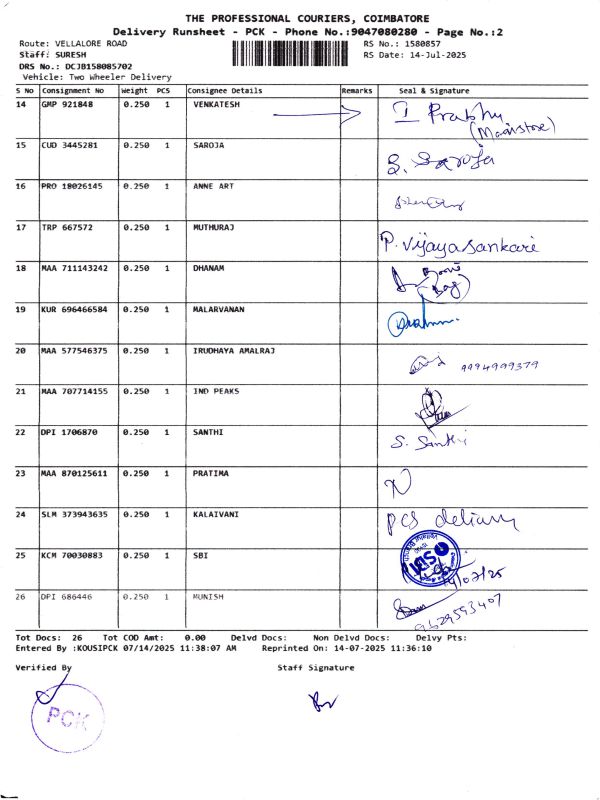 THE PROFESSIONAL COURIERS, COIMBATORE
Delivery Runsheet - PCK - Phone No.:9047080280 - Page No.:2
Route: VELLALORE ROAD RS No.: 1580857
Staff: SURESH RS Date: 14-Jul-2025
DRS No.: DCJB158085702
Vehicle: Two Wheeler Delivery
S No Consignment No Weight PCS Consignee Details Remarks Seal & Signature
14 GMP 921848 0.250 1 VENKATESH I Prabhu
(Mainstore)
15 CUD 3445281 0.250 1 SAROJA S. Saroja
16 PRO 18026145 0.250 1 ANNE ART
17 TRP 667572 0.250 1 MUTHURAJ P. Vijayasankari
18 MAA 711143242 0.250 1 DHANAM
19 KUR 696466584 0.250 1 MALARVANAN
20 MAA 577546375 0.250 1 IRUDHAYA AMALRAJ 9994999379
21 MAA 707714155 0.250 1 IND PEAKS
22 DPI 1706870 0.250 1 SANTHI S. Santhi
23 MAA 870125611 0.250 1 PRATIMA
24 SLM 373943635 0.250 1 KALAIVANI PCS delivary
25 KCM 70030883 0.250 1 SBI SBI 14/07/25
26 DPI 686446 0.250 1 MUNISH 9629593407
Tot Docs: 26 Tot COD Amt: 0.00 Delvd Docs: Non Delvd Docs: Delvy Pts:
Entered By :KOUSIPCK 07/14/2025 11:38:07 AM Reprinted On: 14-07-2025 11:36:10
Verified By Staff Signature
PCK